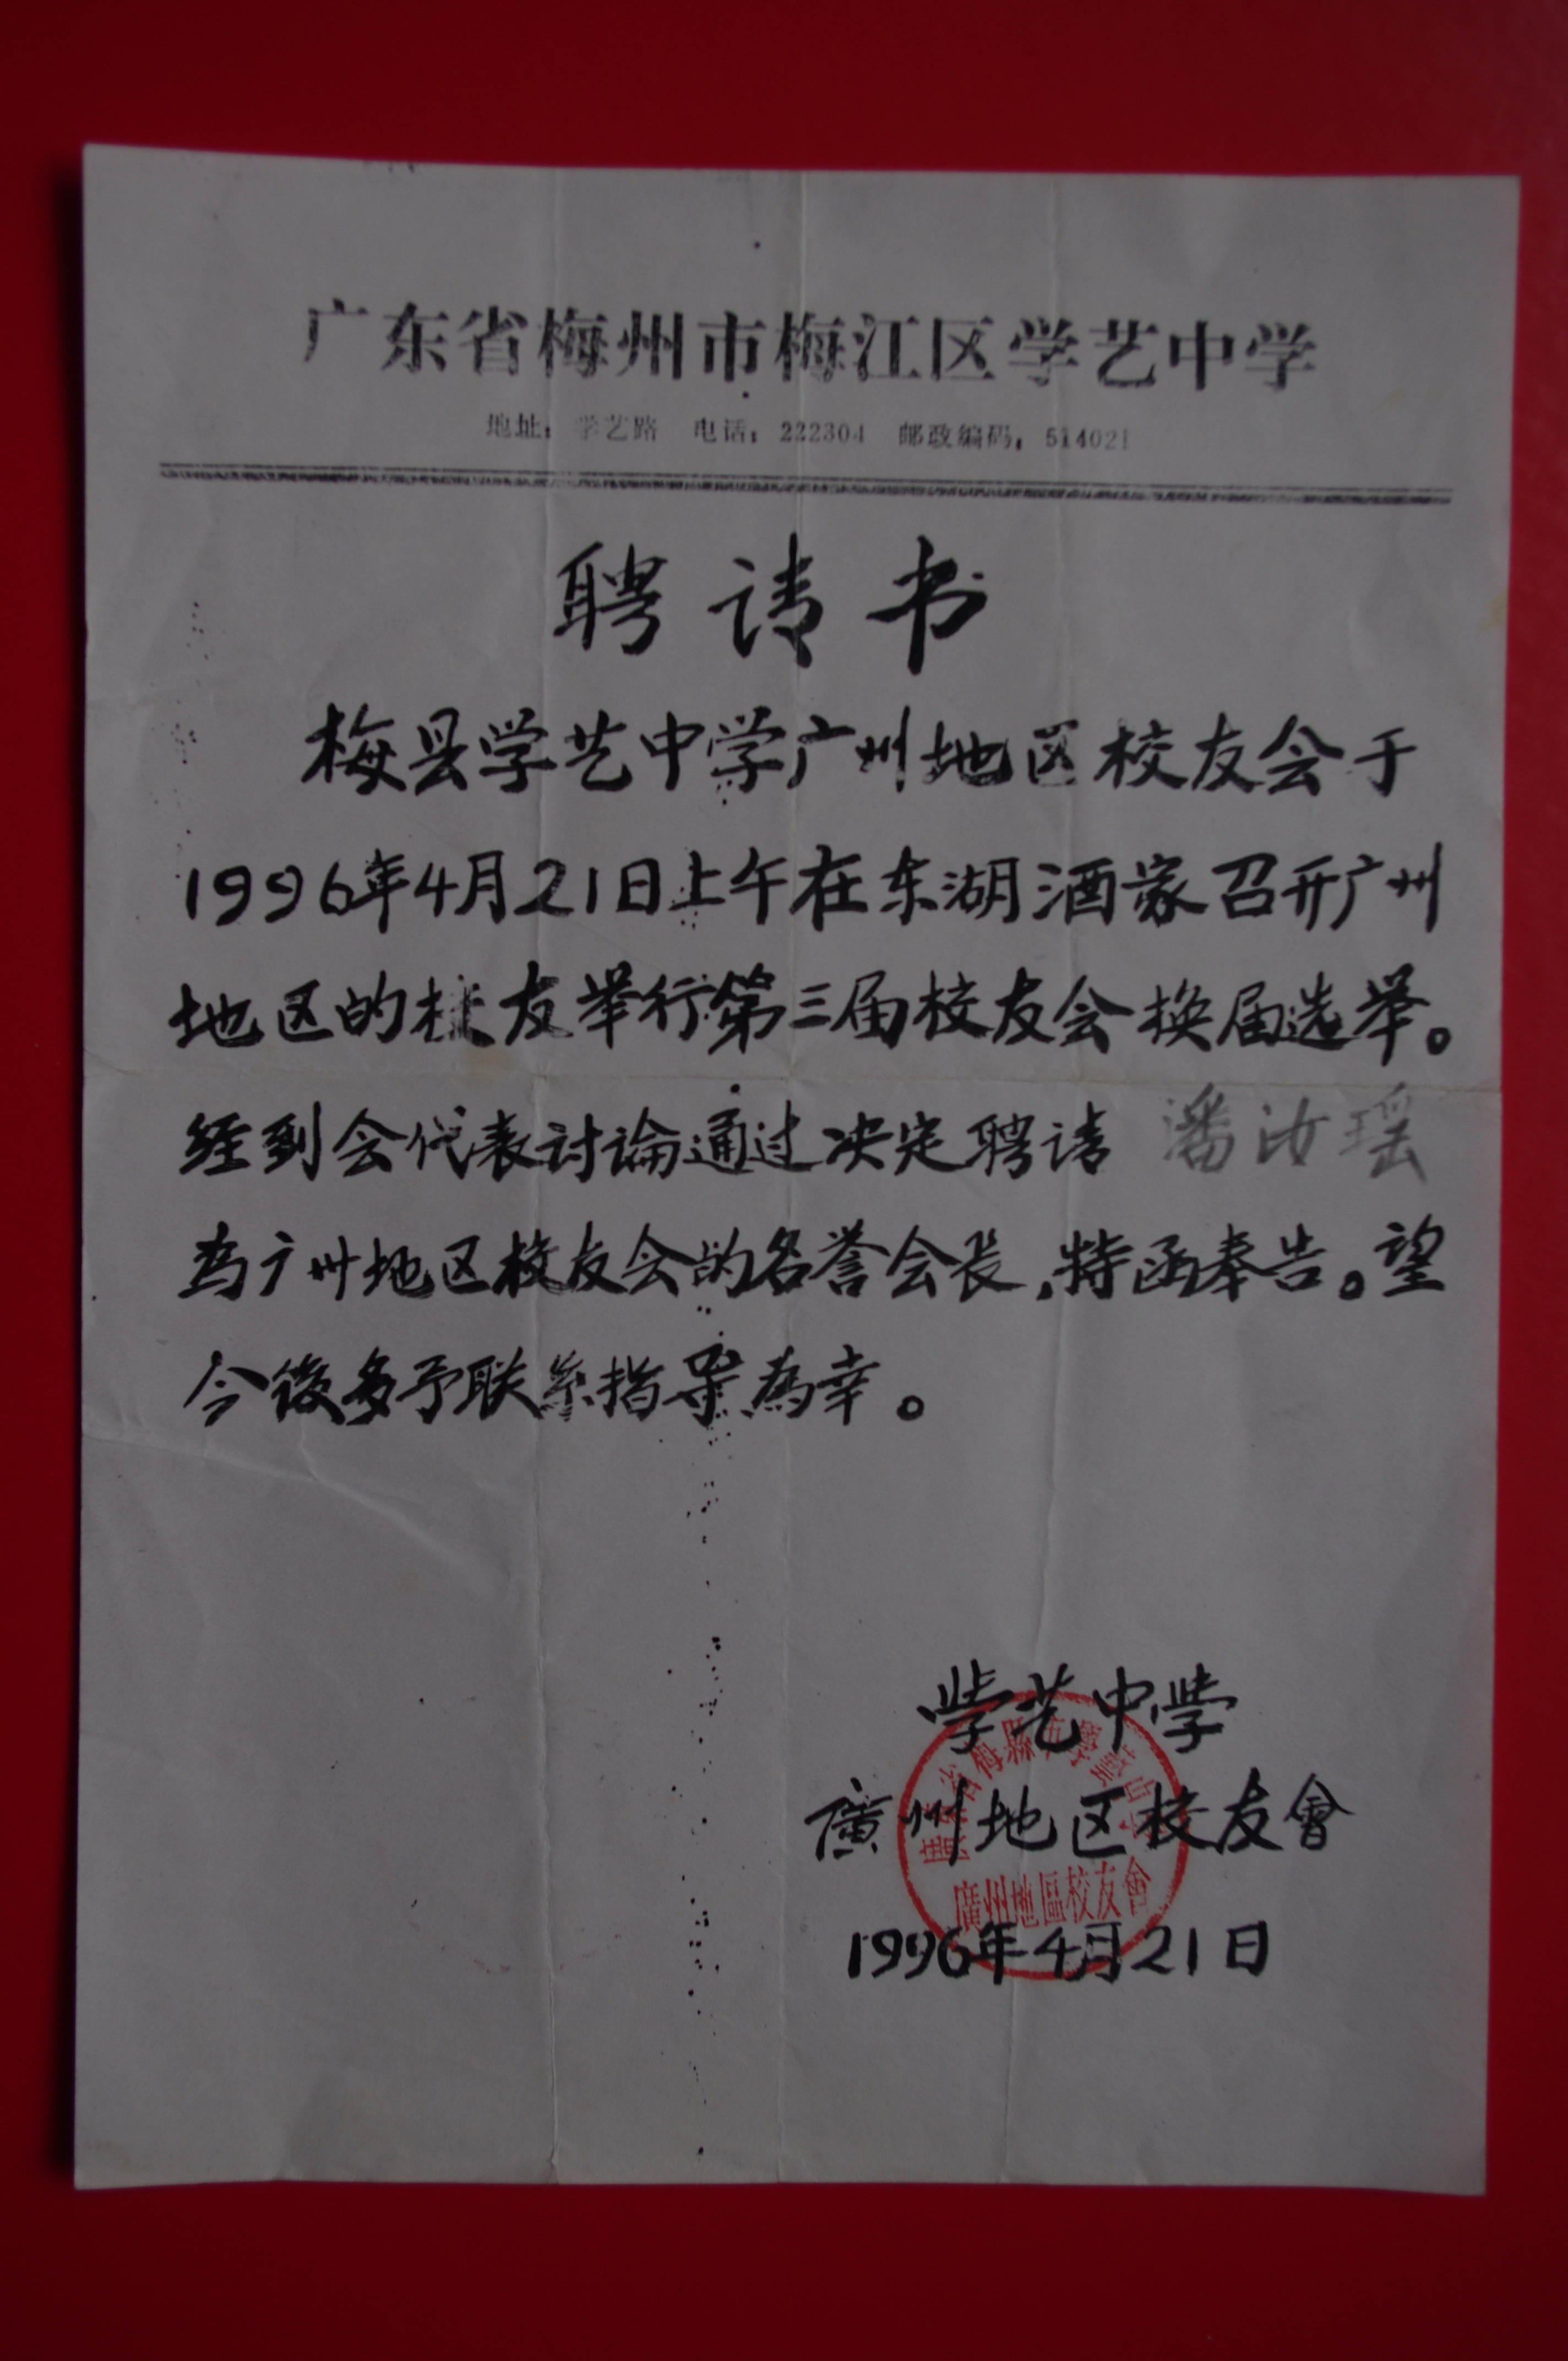 广东省梅州市梅江区学艺中学
地址：学艺路 电话：222304 邮政编码：514021
聘请书
梅县学艺中学广州地区校友会于
1996年4月21日上午在东湖酒家召开广州
地区的校友举行第三届校友会换届选举。
经到会代表讨論通过决定聘请 潘汝瑶
为广州地区校友会的名誉会长,特函奉告。望
今後多予联系指导為幸。
学艺中学
廣州地区校友會
廣州地區校友會
1996年4月21日